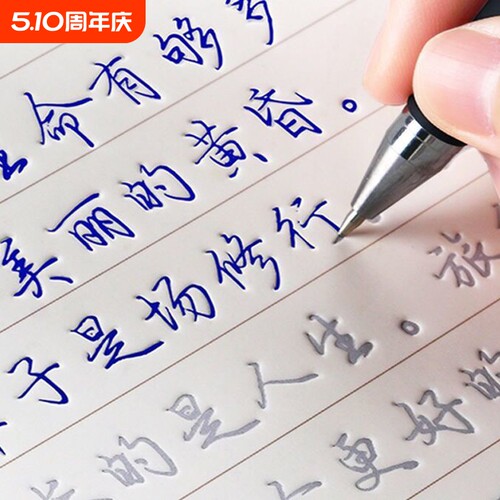 5.10周年庆
命有够多
美丽的黄昏。
子是场修行。
的是人生。旅
更好的